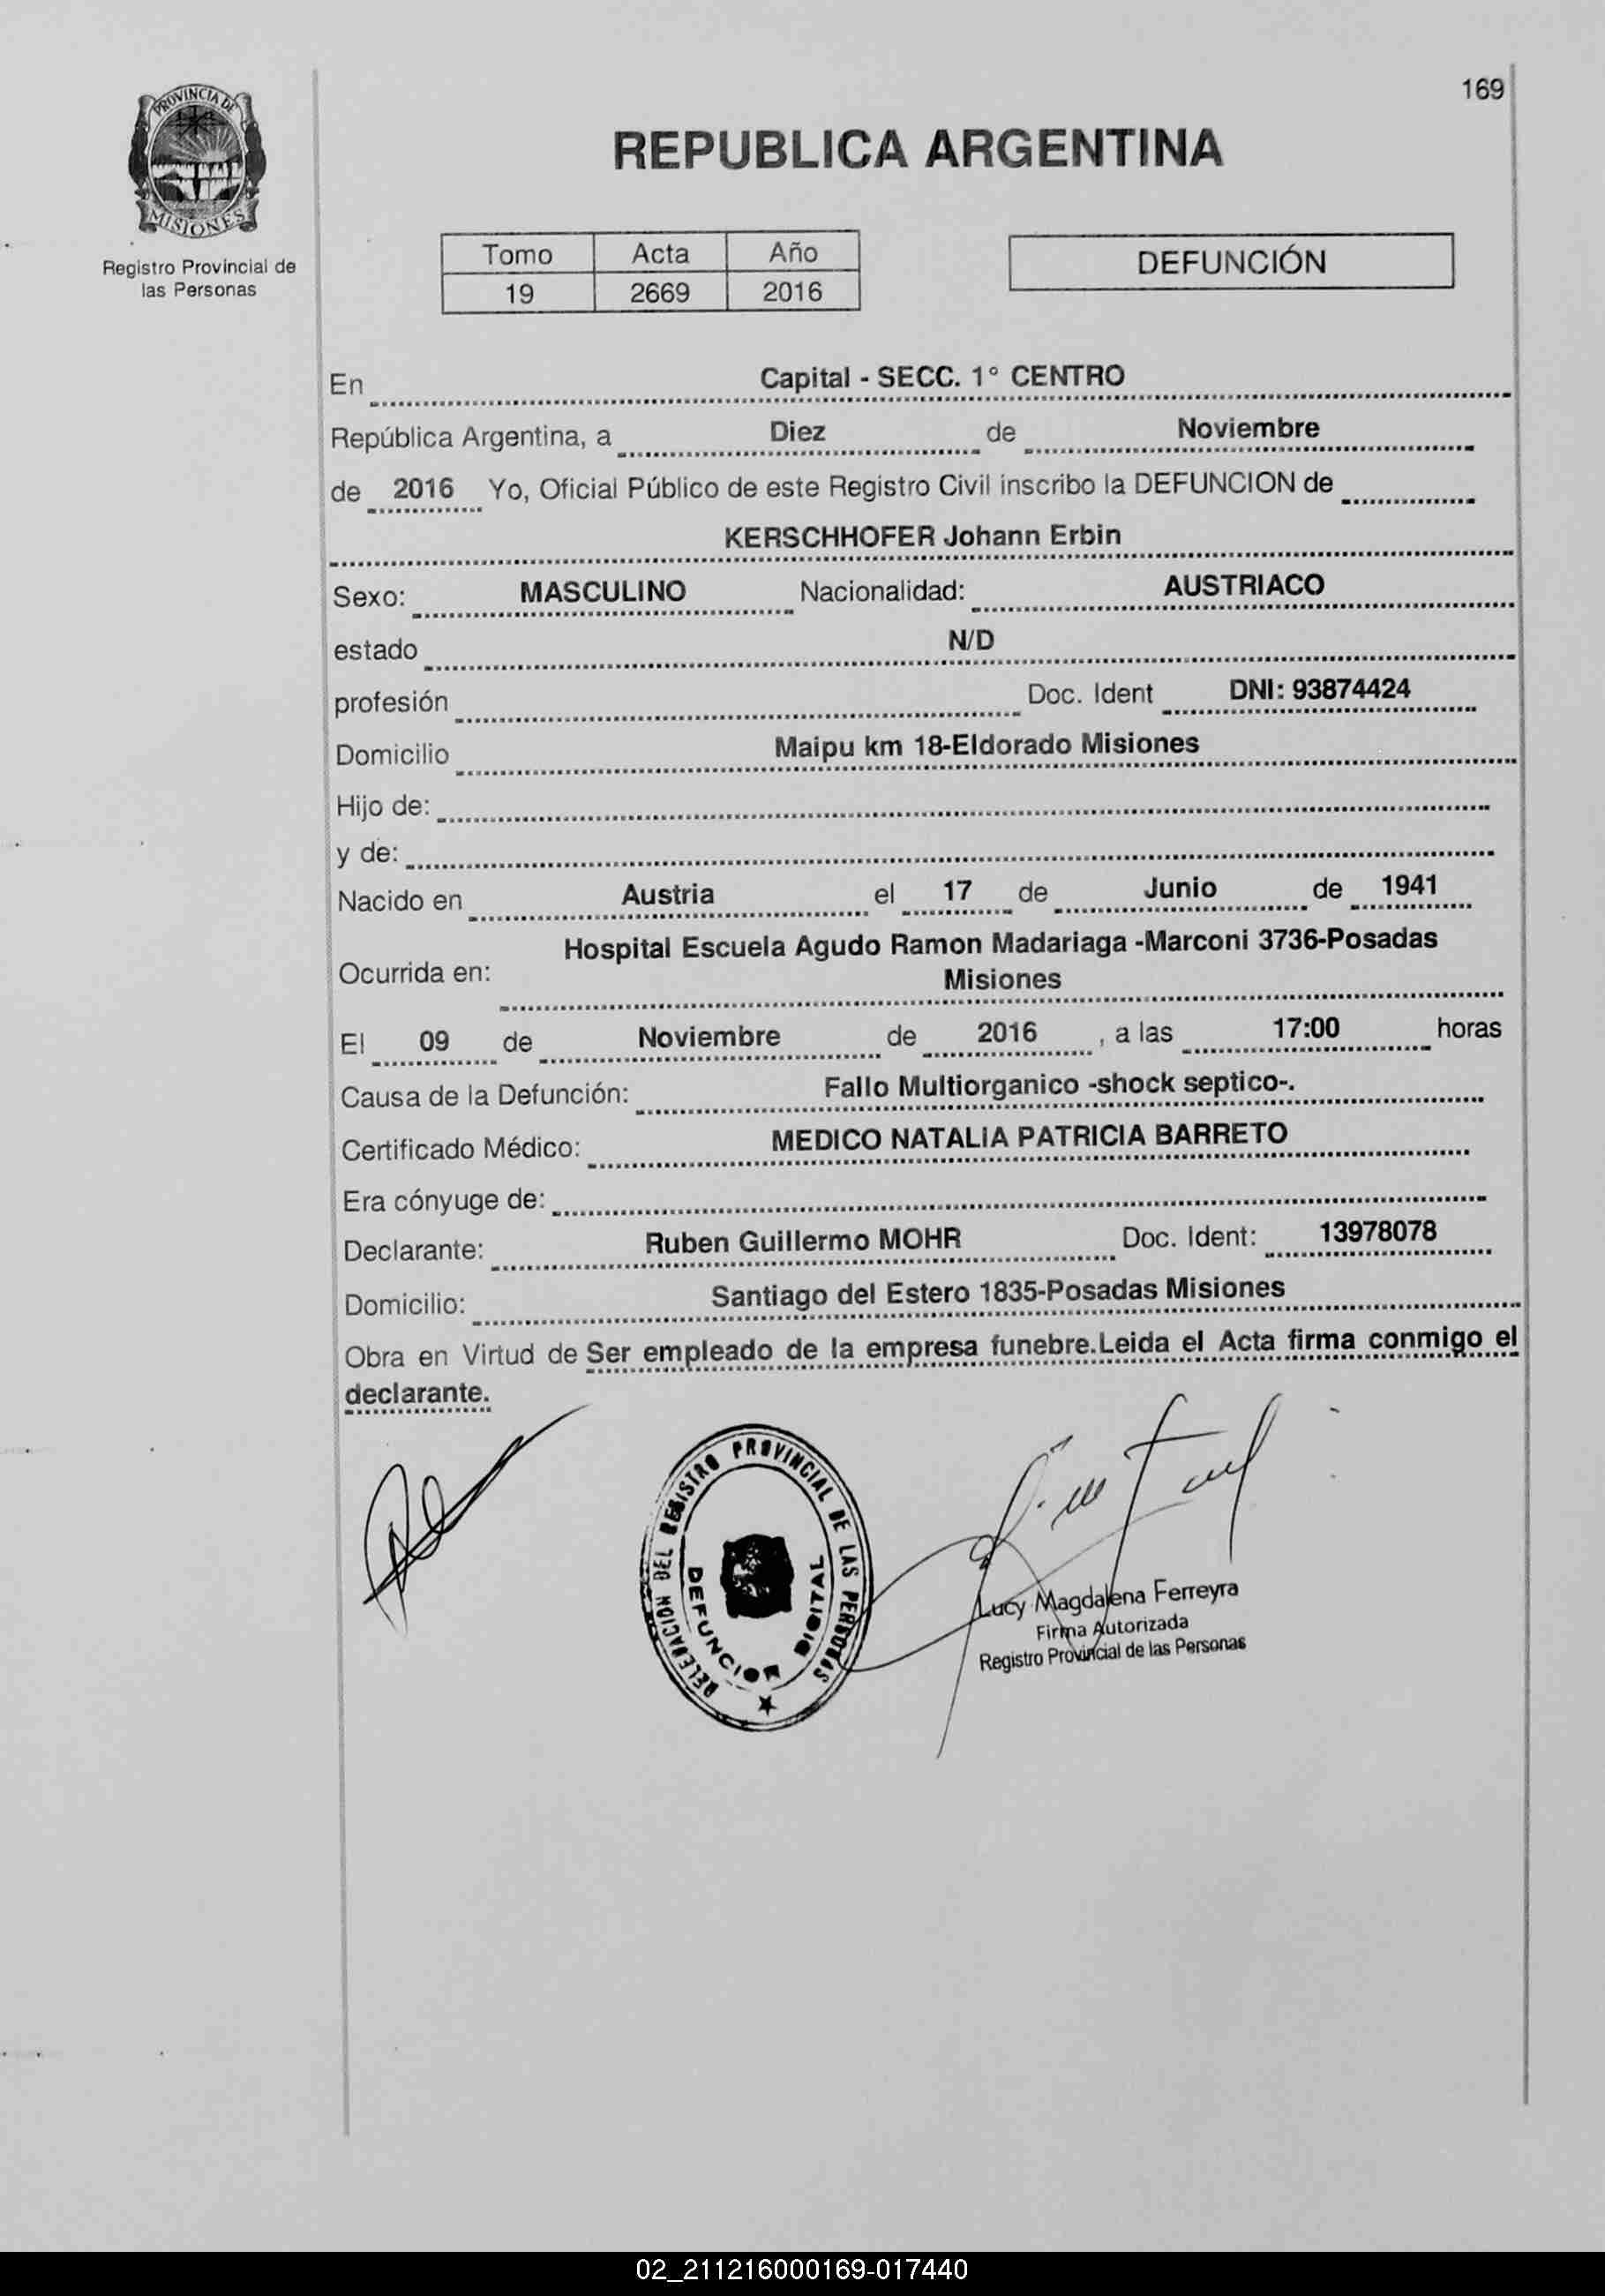 169
PROVINCIA DE
MISIONES
Registro Provincial de
las Personas
REPUBLICA ARGENTINA
Tomo Acta Año
19 2669 2016
DEFUNCIÓN
En Capital - SECC. 1° CENTRO
República Argentina, a Diez de Noviembre
de 2016 Yo, Oficial Público de este Registro Civil inscribo la DEFUNCION de
KERSCHHOFER Johann Erbin
Sexo: MASCULINO Nacionalidad: AUSTRIACO
estado N/D
profesión Doc. Ident DNI: 93874424
Domicilio Maipu km 18-Eldorado Misiones
Hijo de:
y de:
Nacido en Austria el 17 de Junio de 1941
Ocurrida en: Hospital Escuela Agudo Ramon Madariaga -Marconi 3736-Posadas
Misiones
El 09 de Noviembre de 2016 , a las 17:00 horas
Causa de la Defunción: Fallo Multiorganico -shock septico-.
Certificado Médico: MEDICO NATALIA PATRICIA BARRETO
Era cónyuge de:
Declarante: Ruben Guillermo MOHR Doc. Ident: 13978078
Domicilio: Santiago del Estero 1835-Posadas Misiones
Obra en Virtud de Ser empleado de la empresa funebre.Leida el Acta firma conmigo el
declarante.
DELEGACION DEL REGISTRO PROVINCIAL DE LAS PERSONAS
DEFUNCION DIGITAL
Lucy Magdalena Ferreyra
Firma Autorizada
Registro Provincial de las Personas
02_211216000169-017440